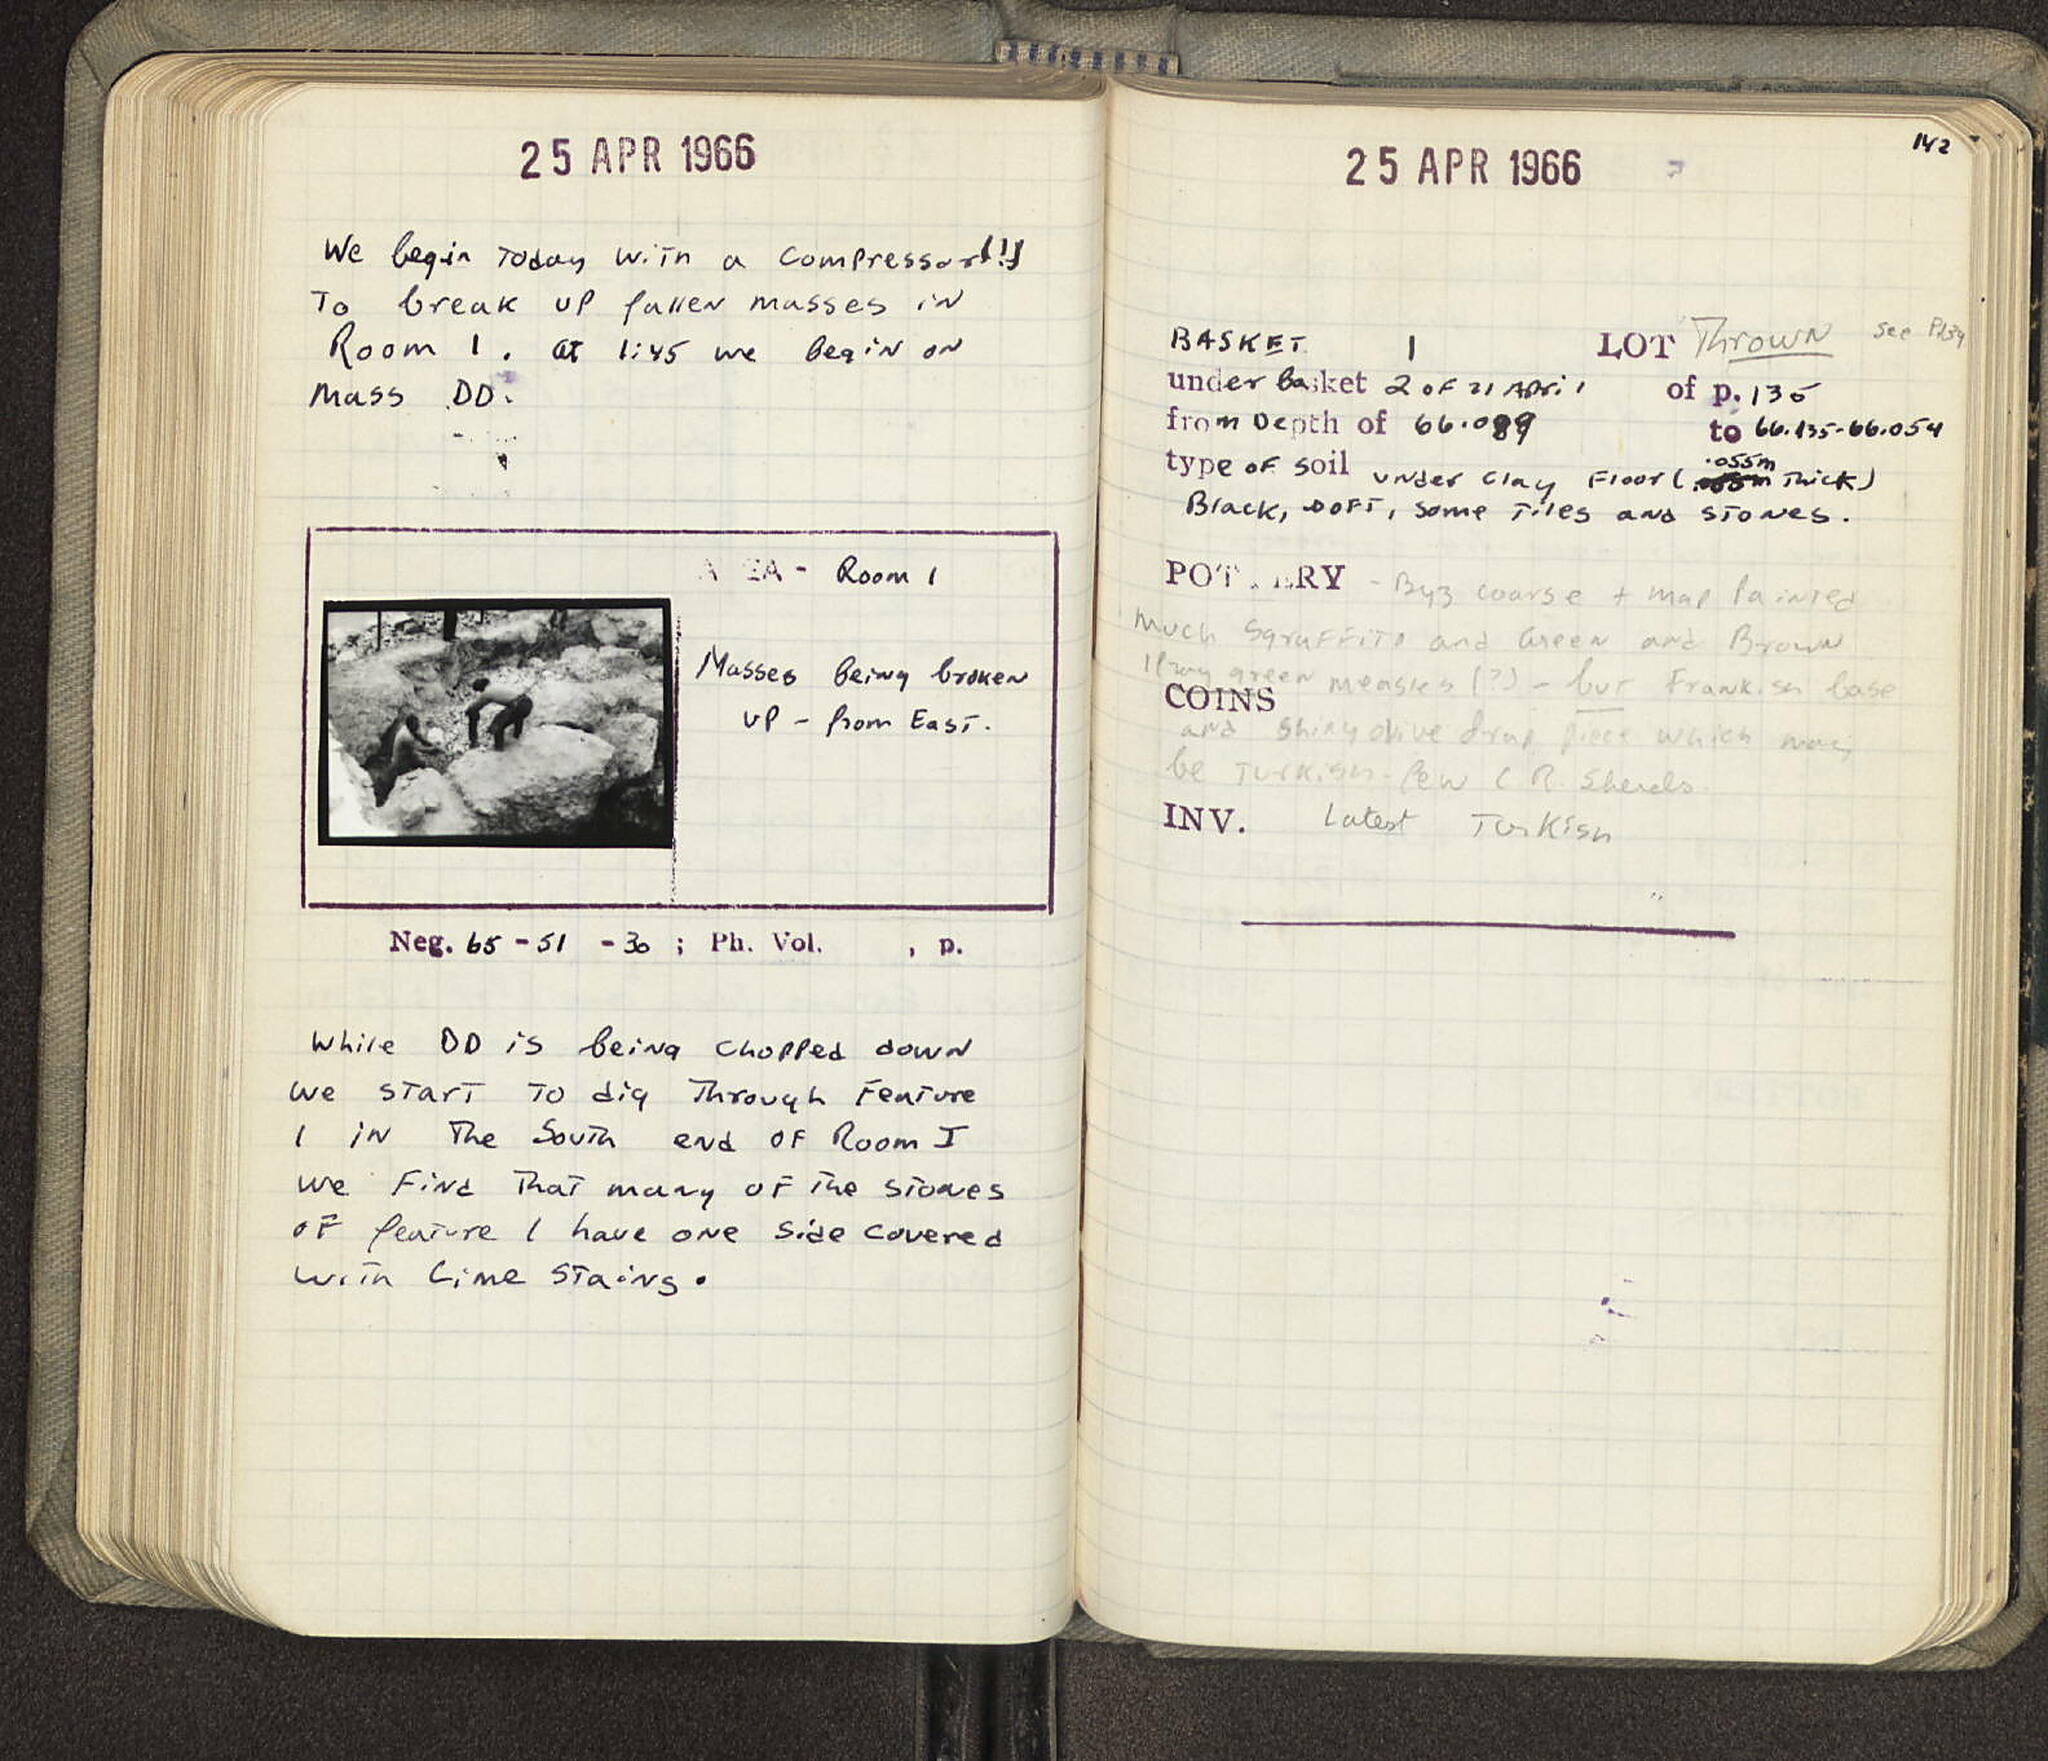 25 APR 1966
We begin today with a compressor (!!)
To break up fallen masses in
Room 1. at 1:45 we begin on
mass DD.
AREA - Room 1
Masses being broken
up - from East.
Neg. 65 - 51 - 30 ; Ph. Vol. , p.
While DD is being chopped down
we start to dig through Feature
1 in the South end of Room I
we find that many of the stones
of feature 1 have one side covered
with lime stains.
142
25 APR 1966
BASKET 1 LOT Thrown see P134
under basket 2 of 21 April of p. 135
from Depth of 66.089 to 66.135-66.054
type of soil under clay floor (.055m thick)
Black, soft, some tiles and stones.
POTTERY - Byz coarse + mat painted
much Sgraffito and Green and Brown
green measles (?) - but Frankish base
COINS
and shiny olive drap piece which may
be Turkish - few C R. Sherds.
INV. Latest Turkish